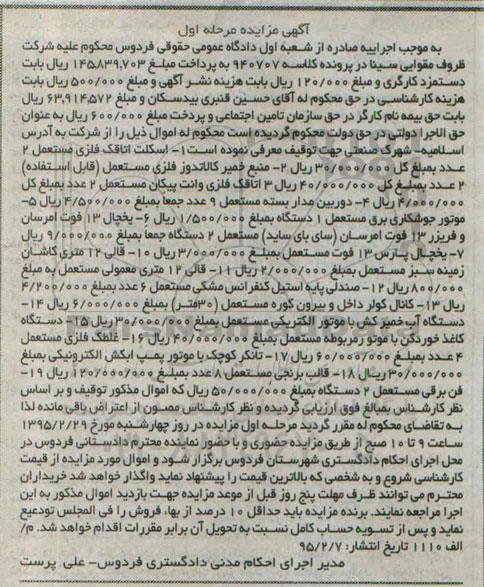 آگهی مزایده مرحله اول
به موجب اجراییه صادره از شعبه اول دادگاه عمومی حقوقی فردوس محکوم علیه شرکت
ظروف مقوایی سینا در پرونده کلاسه ۹۴۰۷۰۷ به پرداخت مبلغ ۱۴۵،۸۳۹،۷۰۳ ریال بابت
دستمزد کارگری و مبلغ ۱۲۰/۰۰۰ ریال بابت هزینه نشر آگهی و مبلغ ۵۰۰/۰۰۰ ریال بابت
هزینه کارشناسی در حق محکوم له آقای حسین قنبری بیدسکان و مبلغ ۶۳,۹۱۴,۵۷۲ ریال
بابت حق بیمه نام کارگر در حق سازمان تامین اجتماعی و پرداخت مبلغ ۶۰۰/۰۰۰ ریال به عنوان
حق الاجرا دولتی در حق دولت محکوم گردیده است محکوم له اموال ذیل را از شرکت به آدرس
اسلامیه- شهرک صنعتی جهت توقیف معرفی نموده است ۱- اسکلت اتاقک فلزی مستعمل ۲
عدد بمبلغ کل ۳۰/۰۰۰/۰۰۰ ریال ۲- منبع خمیر کالاتدوز فلزی مستعمل (قابل استفاده)
۲ عدد بمبلغ کل ۴۰/۰۰۰/۰۰۰ ریال ۳ اتاقک فلزی وانت پیکان مستعمل ۲ عدد بمبلغ کل
۴/۰۰۰/۰۰۰ ریال ۴- دوربین مدار بسته مستعمل ۹ عدد جمعا بمبلغ ۴/۵۰۰/۰۰۰ ریال ۵-
موتور جوشکاری برق مستعمل ۱ دستگاه بمبلغ ۱/۵۰۰/۰۰۰ ریال ۶- یخچال ۱۳ فوت امرسان
و فریزر ۱۳ فوت امرسان (سای بای ساید) مستعمل ۲ دستگاه جمعا بمبلغ ۹/۰۰۰/۰۰۰ ریال
۷- یخچال پارس ۱۳ فوت مستعمل بمبلغ ۳/۰۰۰/۰۰۰ ریال ۱۰- قالی ۱۲ متری کاشان
زمینه سبز مستعمل بمبلغ ۲/۰۰۰/۰۰۰ ریال ۱۱- قالی ۱۲ متری معمولی مستعمل به مبلغ
۸۰۰/۰۰۰ ریال ۱۲- صندلی پایه استیل کنفرانس مشکی مستعمل ۶ عدد بمبلغ ۴/۲۰۰/۰۰۰
ریال ۱۳- کانال کولر داخل و بیرون کوره مستعمل (۳۰متر) بمبلغ ۶/۰۰۰/۰۰۰ ریال ۱۴-
دستگاه آب خمیر کش با موتور الکتریکی مستعمل بمبلغ ۳۰/۰۰۰/۰۰۰ ریال ۱۵- دستگاه
کاغذ خوردکن با موتور مربوطه مستعمل بمبلغ ۴۰/۰۰۰/۰۰۰ ریال ۱۶- غلطک فلزی مستعمل
۴ عدد بمبلغ ۶۰/۰۰۰/۰۰۰ ریال ۱۷- تانکر کوچک با موتور پمپ ابکش الکترونیکی بمبلغ
۳۰/۰۰۰/۰۰۰ ریال ۱۸- قالب برنجی مستعمل ۸ عدد بمبلغ ۱۲۰/۰۰۰/۰۰۰ ریال ۱۹-
فن برقی مستعمل ۲ دستگاه بمبلغ ۵۰/۰۰۰/۰۰۰ ریال که اموال مذکور توقیف و بر اساس
نظر کارشناس بمبالغ فوق ارزیابی گردیده و نظر کارشناس مصون از اعتراض باقی مانده لذا
به تقاضای محکوم له مقرر گردید مرحله اول مزایده در روز چهارشنبه مورخ ۱۳۹۵/۲/۲۹
ساعت ۹ تا ۱۰ صبح از طریق مزایده حضوری و با حضور نماینده محترم دادستانی فردوس در
محل اجرای احکام دادگستری شهرستان فردوس برگزار شود و اموال مورد مزایده از قیمت
کارشناسی شروع و به شخصی که بالاترین قیمت را پیشنهاد نماید واگذار خواهد شد خریداران
محترم می توانند ظرف مهلت پنج روز قبل از موعد مزایده جهت بازدید اموال مذکور به این
اجرا مراجعه نمایند. برنده مزایده باید حداقل ۱۰ درصد از بها، فروش را فی المجلس تودعیع
نماید و پس از تسویه حساب کامل نسبت به تحویل آن برابر مقررات اقدام خواهد شد. م/
الف ۱۱۱۰ تاریخ انتشار: ۹۵/۲/۷
مدیر اجرای احکام مدنی دادگستری فردوس- علی پرست